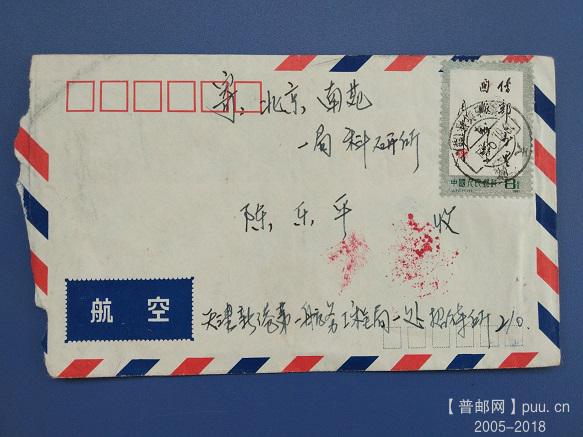 寄: 北京 南苑
一局 科研所
陈乐平 收
航空
天津新港第一航务工程局一处招待所 210.
中国人民邮政 8分
【普邮网】puu.cn
2005-2018